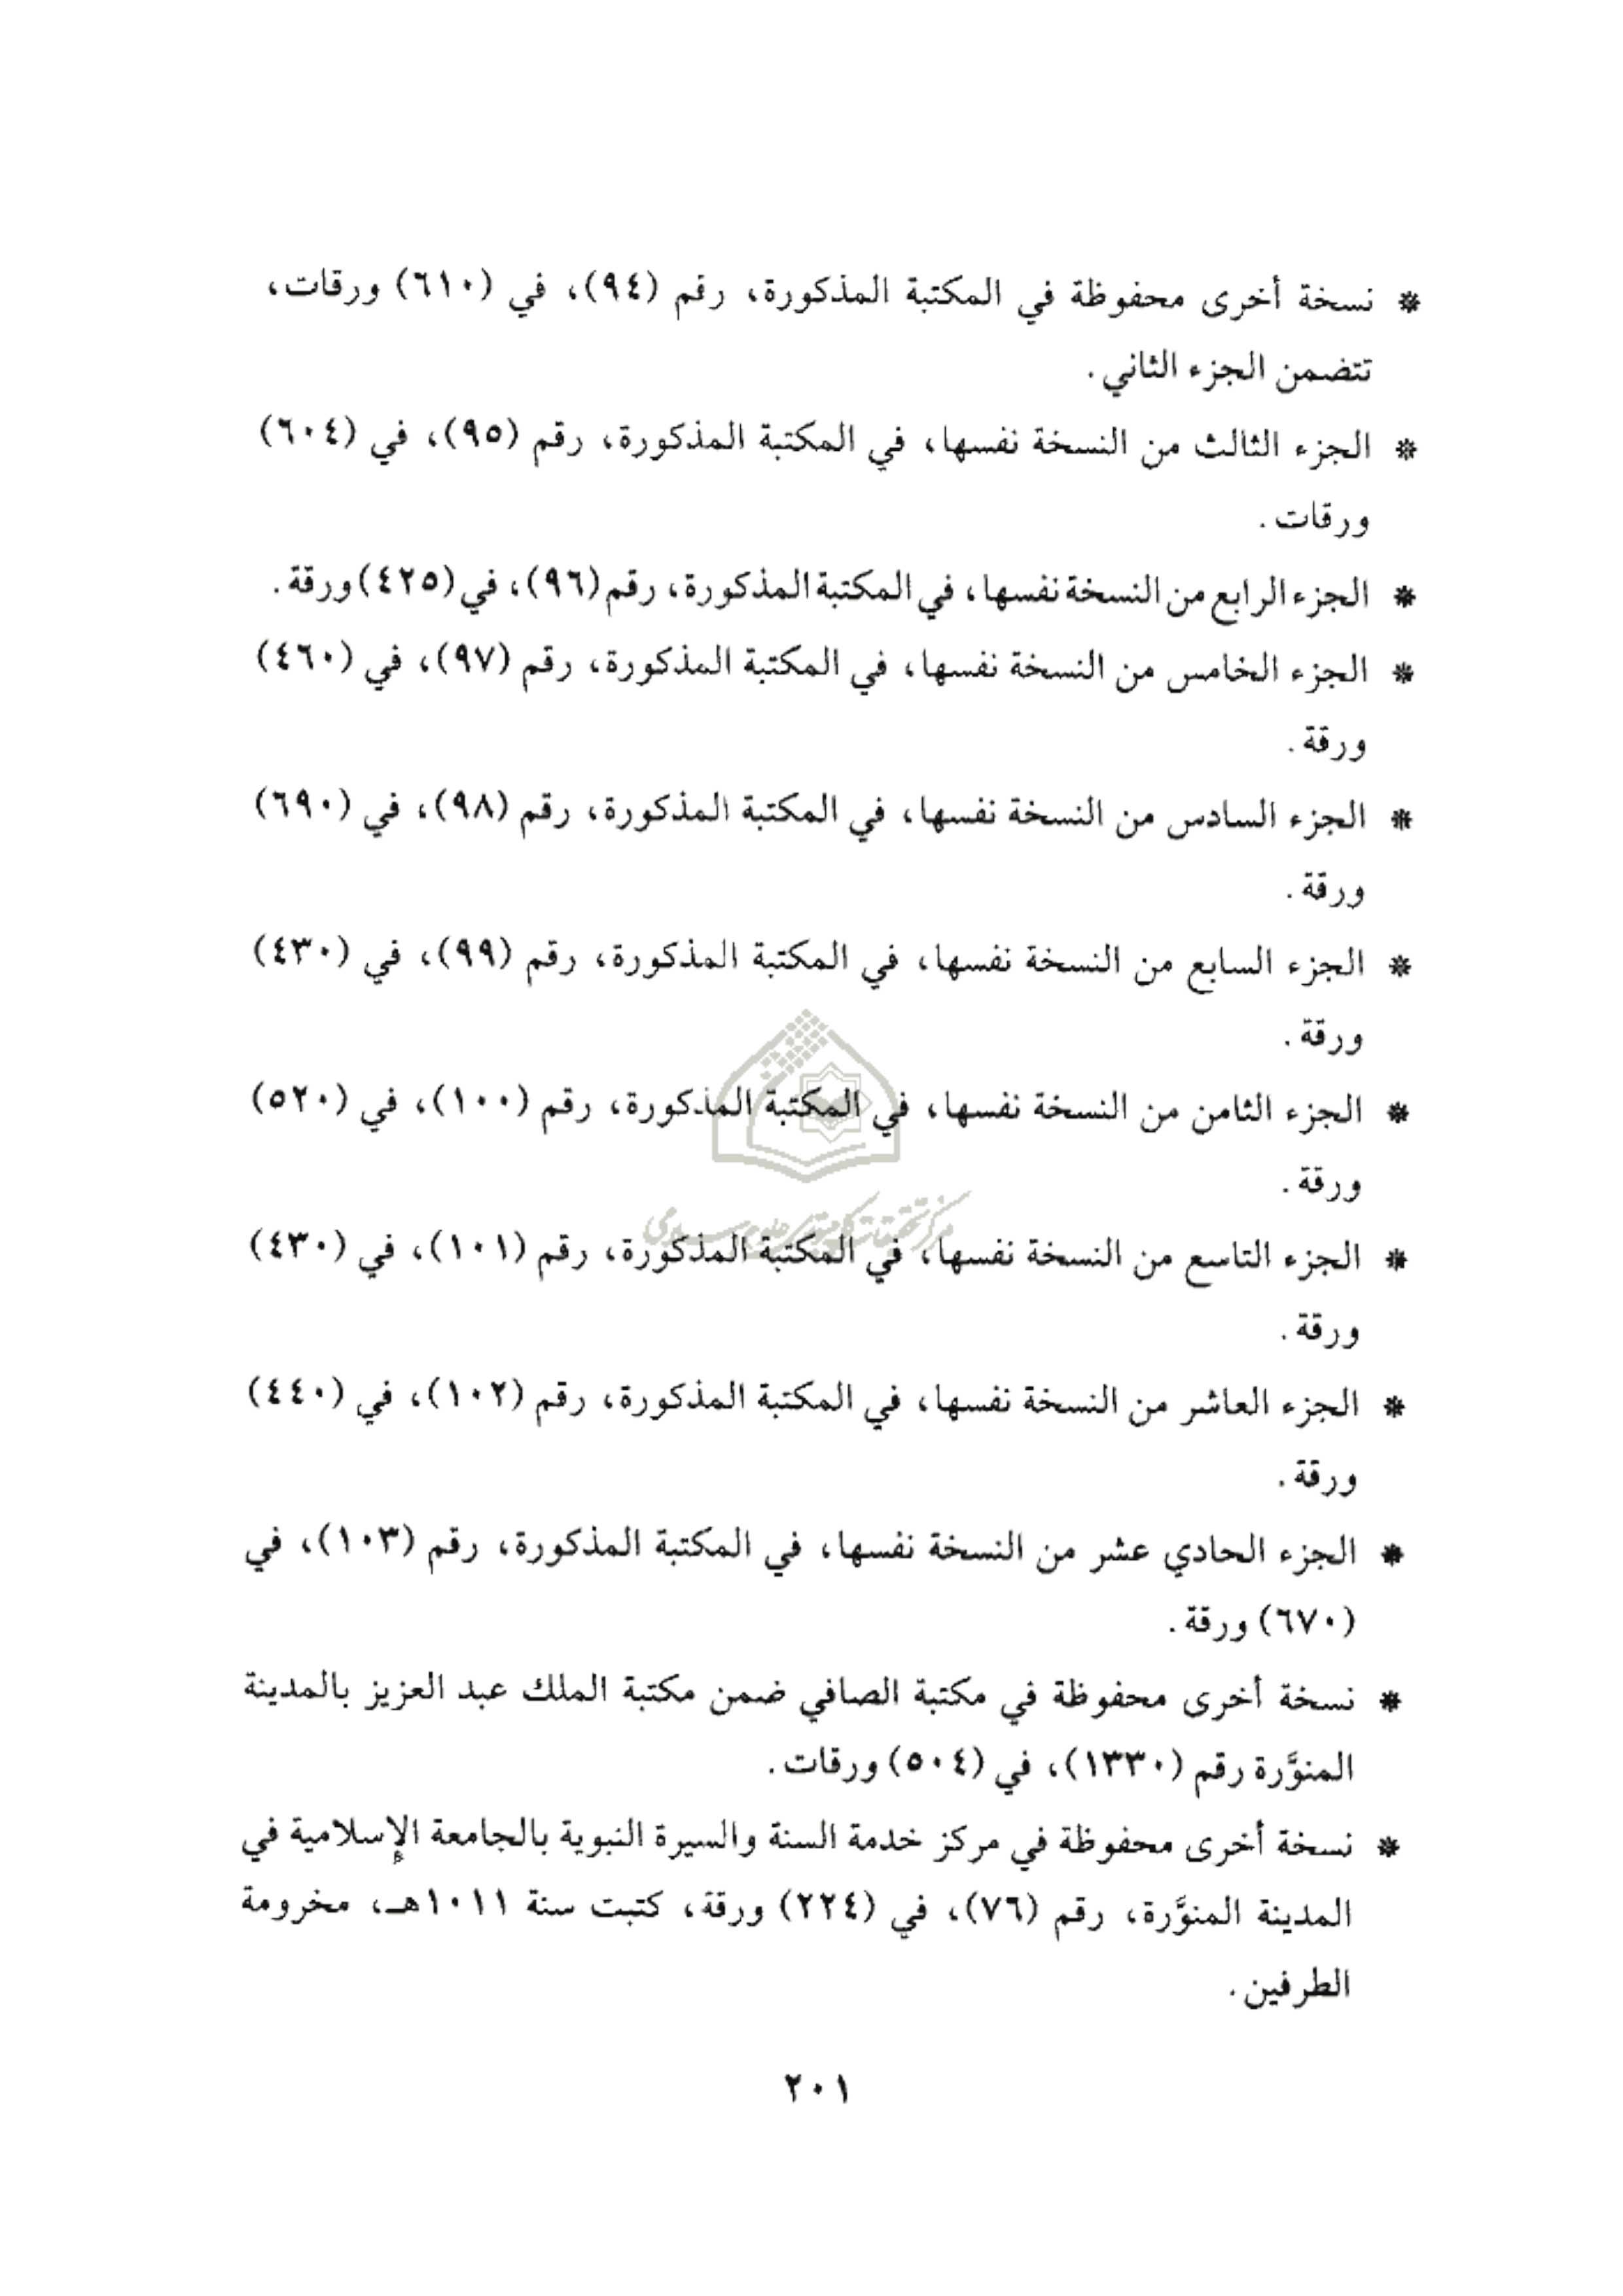 * نسخة أخرى محفوظة في المكتبة المذكورة، رقم (٩٤)، في (٦١٠) ورقات،
تتضمن الجزء الثاني.
* الجزء الثالث من النسخة نفسها، في المكتبة المذكورة، رقم (٩٥)، في (٦٠٤)
ورقات.
* الجزء الرابع من النسخة نفسها، في المكتبة المذكورة، رقم (٩٦)، في (٤٢٥) ورقة.
* الجزء الخامس من النسخة نفسها، في المكتبة المذكورة، رقم (٩٧)، في (٤٦٠)
ورقة.
* الجزء السادس من النسخة نفسها، في المكتبة المذكورة، رقم (٩٨)، في (٦٩٠)
ورقة.
* الجزء السابع من النسخة نفسها، في المكتبة المذكورة، رقم (٩٩)، في (٤٣٠)
ورقة.
* الجزء الثامن من النسخة نفسها، في المكتبة المذكورة، رقم (١٠٠)، في (٥٢٠)
ورقة.
* الجزء التاسع من النسخة نفسها، في المكتبة المذكورة، رقم (١٠١)، في (٤٣٠)
ورقة.
* الجزء العاشر من النسخة نفسها، في المكتبة المذكورة، رقم (١٠٢)، في (٤٤٠)
ورقة.
* الجزء الحادي عشر من النسخة نفسها، في المكتبة المذكورة، رقم (١٠٣)، في
(٦٧٠) ورقة.
* نسخة أخرى محفوظة في مكتبة الصافي ضمن مكتبة الملك عبد العزيز بالمدينة
المنوَّرة رقم (١٣٣٠)، في (٥٠٤) ورقات.
* نسخة أخرى محفوظة في مركز خدمة السنة والسيرة النبوية بالجامعة الإسلامية في
المدينة المنوَّرة، رقم (٧٦)، في (٢٢٤) ورقة، كتبت سنة ١٠١١هـ، مخرومة
الطرفين.
٢٠١